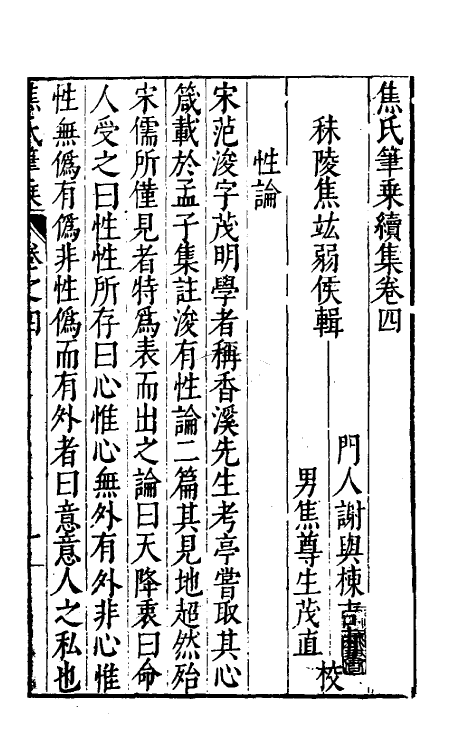 焦氏筆乗續集卷四
秣陵焦竑弱侯輯
門人謝與棟吉
男焦尊生茂直
校
性論
宋范浚字茂明學者稱香溪先生考亭嘗取其心
箴載於孟子集註浚有性論二篇其見地超然殆
宋儒所僅見者特爲表而出之論曰天降衷曰命
人受之曰性性所存曰心惟心無外有外非心惟
性無僞有僞非性僞而有外者曰意意人之私也
焦氏筆乗 卷之四 一